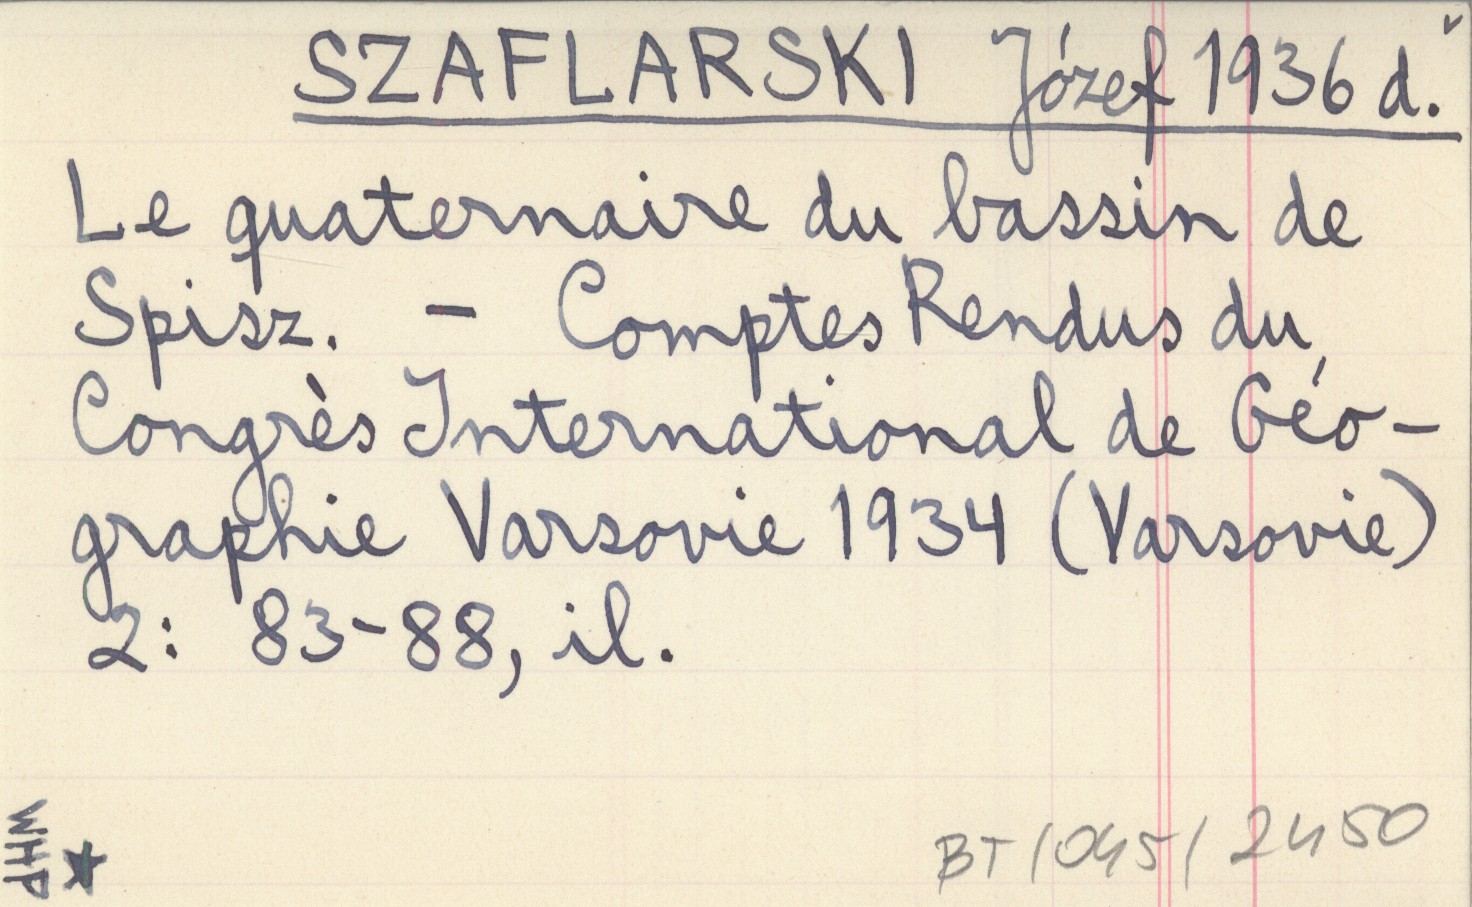 SZAFLARSKI Józef 1936 d.
Le quaternaire du bassin de
Spisz. - Comptes Rendus du
Congrès International de Géo-
graphie Varsovie 1934 (Varsovie)
2: 83-88, il.
WHP
BT/045/2450